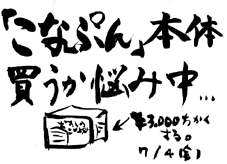 「こなぷん」本体
買うか悩み中…
¥3,000ちかく
する。
7/4(金)